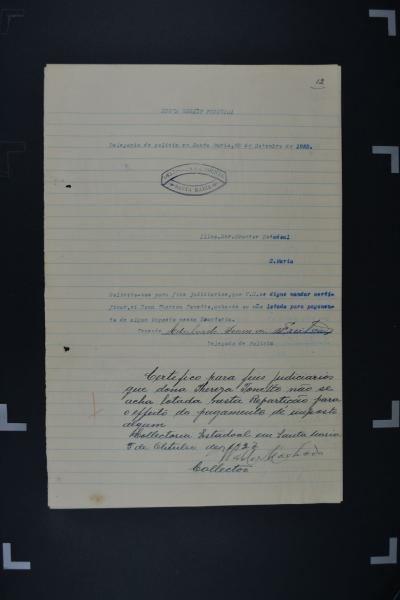 12
Delegacia de policia em Santa Maria, de Setembro de
SANTA MARIA
Illmo. Snr. Director Estadoal
S. Maria
Solicito-vos para fins judiciarios, que V.S. se digne mandar certi-
ficar, si Dona Thereza Tonetto, acha-se ou não lotada para pagamen-
to de algum imposto nessa
Delegado de Policia
Certifico para fins judiciarios
que dona Thereza Tonetto não se
acha lotada nesta Repartição para
o effeito do pagamento de imposto
algum
Collectoria Estadoal em Santa Maria
5 de Outubro de 1923
Machado
Collector